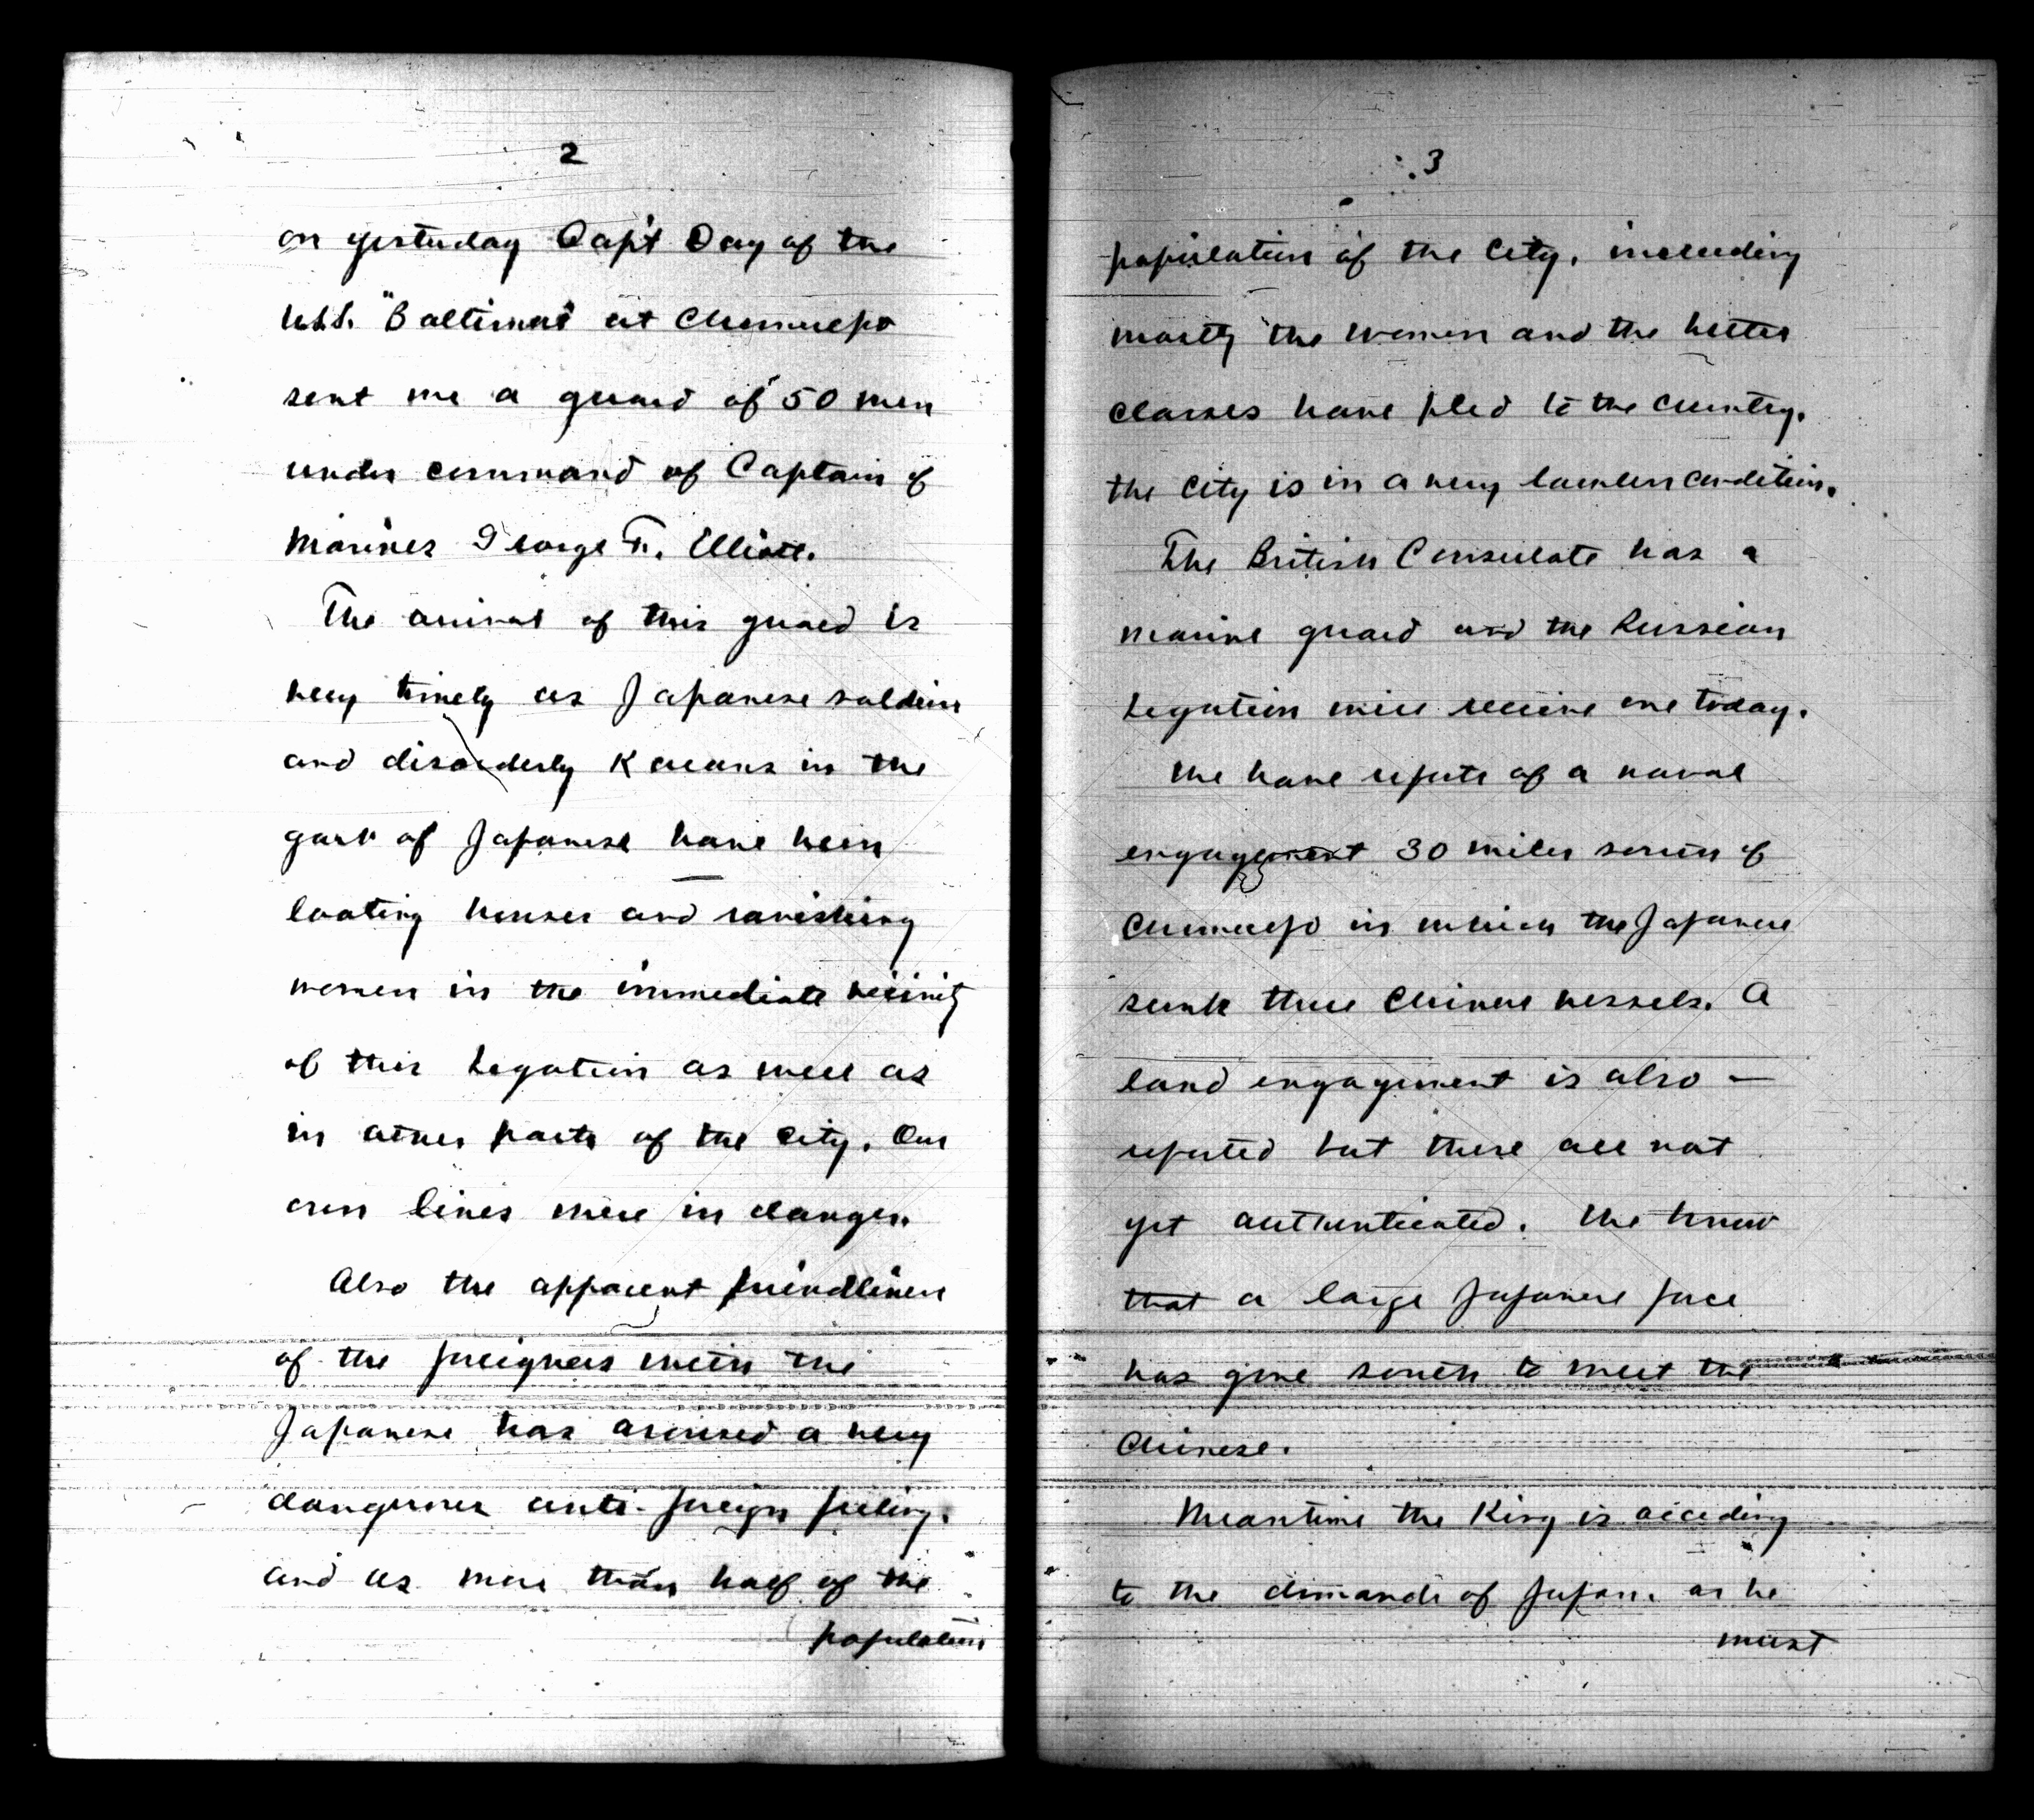 2
on yesterday Capt Day of the
U.S.S. "Baltimore" at Chemulpo
sent me a guard of 50 men
under command of Captain of
Marines George F. Elliott.
The arrival of this guard is
very timely as Japanese soldiers
and disorderly Koreans in the
garb of Japanese have been
looting houses and ravishing
women in the immediate vicinity
of this Legation as well as
in other parts of the city. Our
own lives were in danger.
Also the apparent friendliness
of the foreigners with the
Japanese has aroused a very
dangerous anti-foreign feeling.
and as more than half of the
population
3
population of the city, including
mostly the women and the better
classes have fled to the country.
the city is in a very lawless condition.
The British Consulate has a
marine guard and the Russian
Legation will receive one today.
We have reports of a naval
engagement 30 miles south of
Chemulpo in which the Japanese
sunk three Chinese vessels. A
land engagement is also —
reported but these are not
yet authenticated. We know
that a large Japanese force
has gone south to meet the
Chinese.
Meantime the King is acceding
to the demands of Japan. as he
must